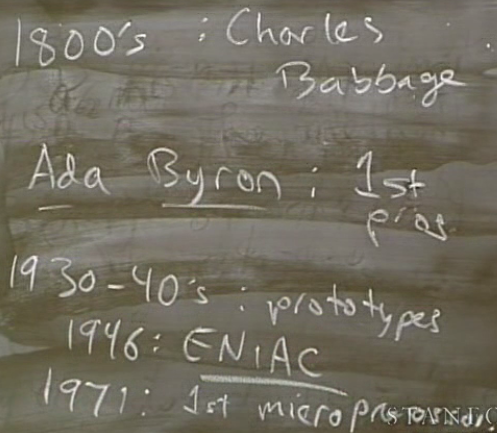 1800's : Charles
Babbage
Ada Byron : 1st
prog
1930-40's : prototypes
1946: ENIAC
1971: 1st microprocessor